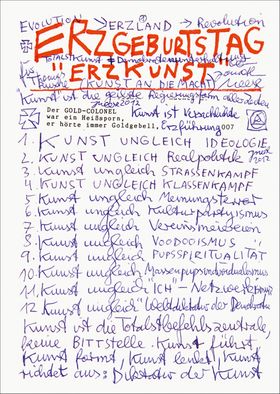 EVOLUTION → ERZLAND → Revolution
ERZGEBURTSTAG
"ERZKUNST"
KUNST AN DIE MACHT
Kunst ist die
Der GOLD-COLONEL
war ein Heißsporn,
er hörte immer Goldgebell,
Kunst ist
Erzführung 007
1. KUNST UNGLEICH IDEOLOGIE
2. KUNST UNGLEICH Realpolitik
3. Kunst ungleich STRASSENKAMPF
4. KUNST UNGLEICH KLASSENKAMPF
5. Kunst ungleich Meinungsterror
6. Kunst ungleich Kulturparfümismus
7. Kunst ungleich Vereinsmeiereien
8. Kunst ungleich "VOODOOISMUS"
9. Kunst ungleich PUPSSPIRITUALITÄT
10. Kunst ungleich
11. Kunst ungleich "ICH"-
12 Kunst ungleich Weltdiktatur der Demokratie
Kunst ist die Totalstbefehlszentrale,
keine BITTSTELLE. Kunst führt,
Kunst formt, Kunst lenkt, Kunst
richtet aus: Diktatur der Kunst